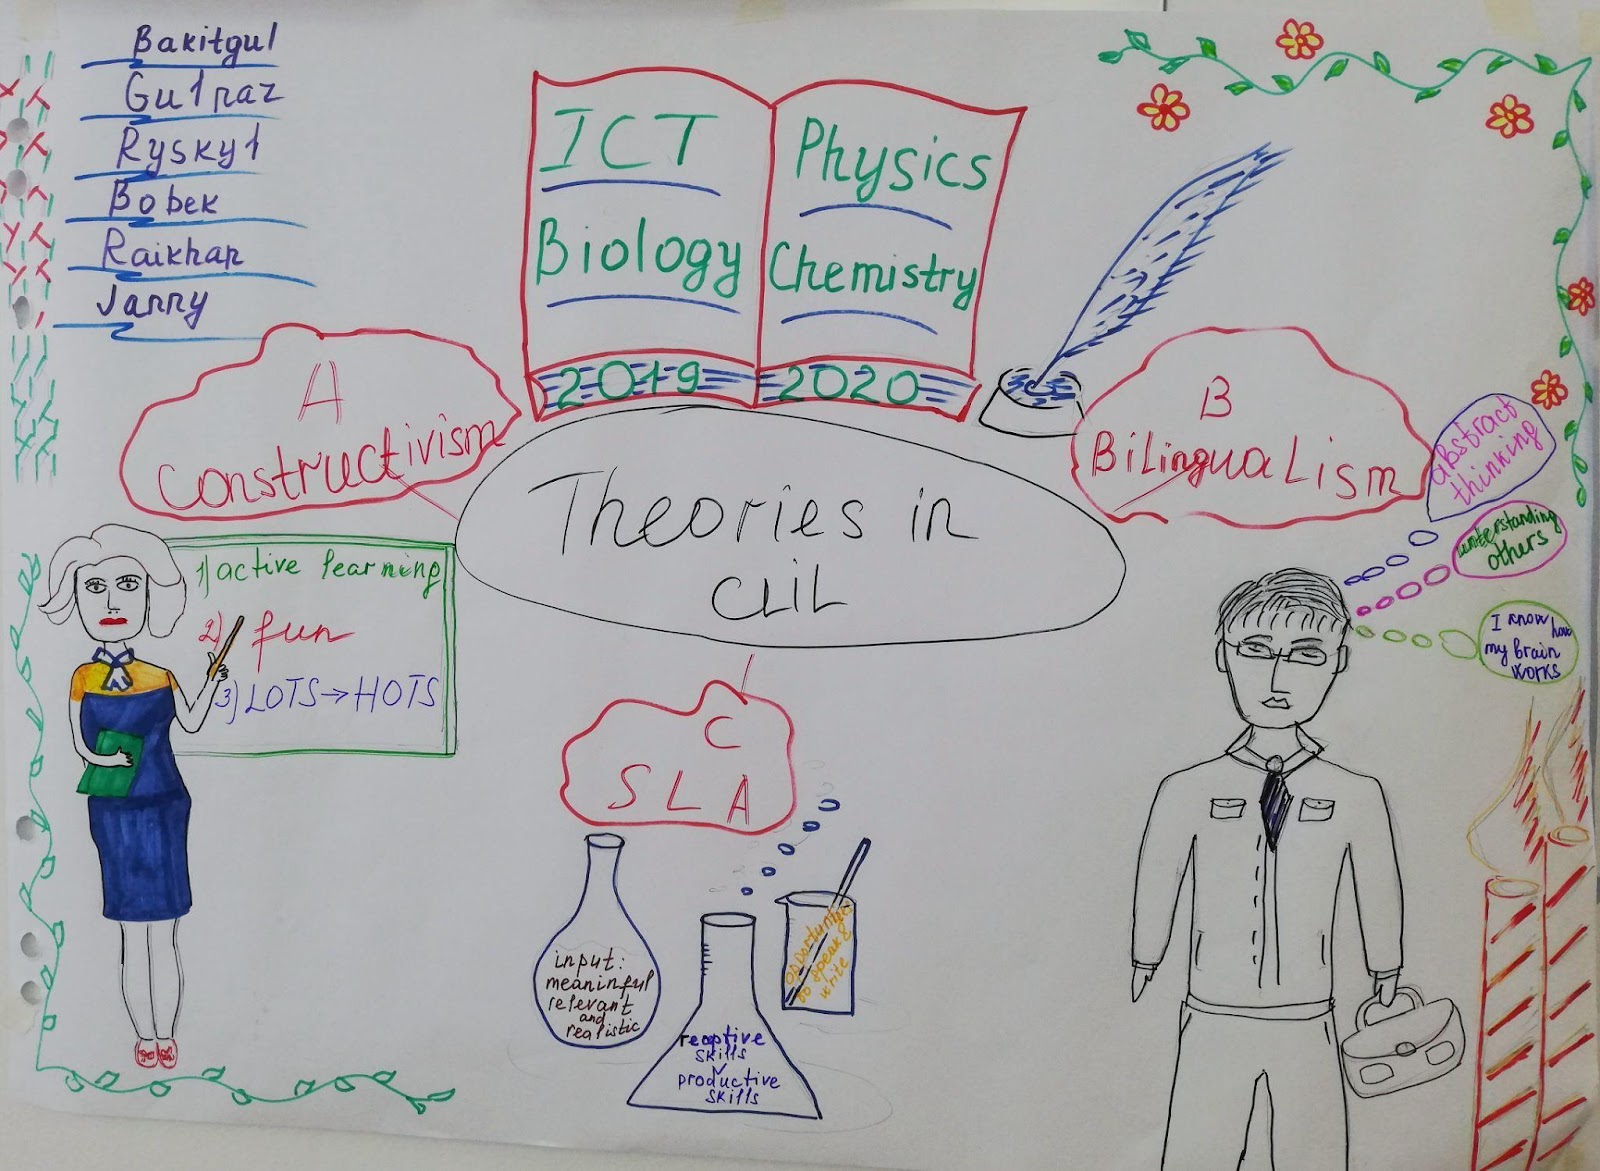 Bakitgul
Gulnaz
Ryskyl
Bobek
Raikhan
Janny
ICT
Biology
2019
Physics
Chemistry
2020
A
Constructivism
Theories in
CLIL
B
Bilingualism
abstract
thinking
understanding
others
I know how
my brain
works
1) active learning
2) fun
3) LOTS → HOTS
C
SLA
input:
meaninful
relevant
and
realistic
receptive
skills
productive
skills
opportunities
to speak &
write